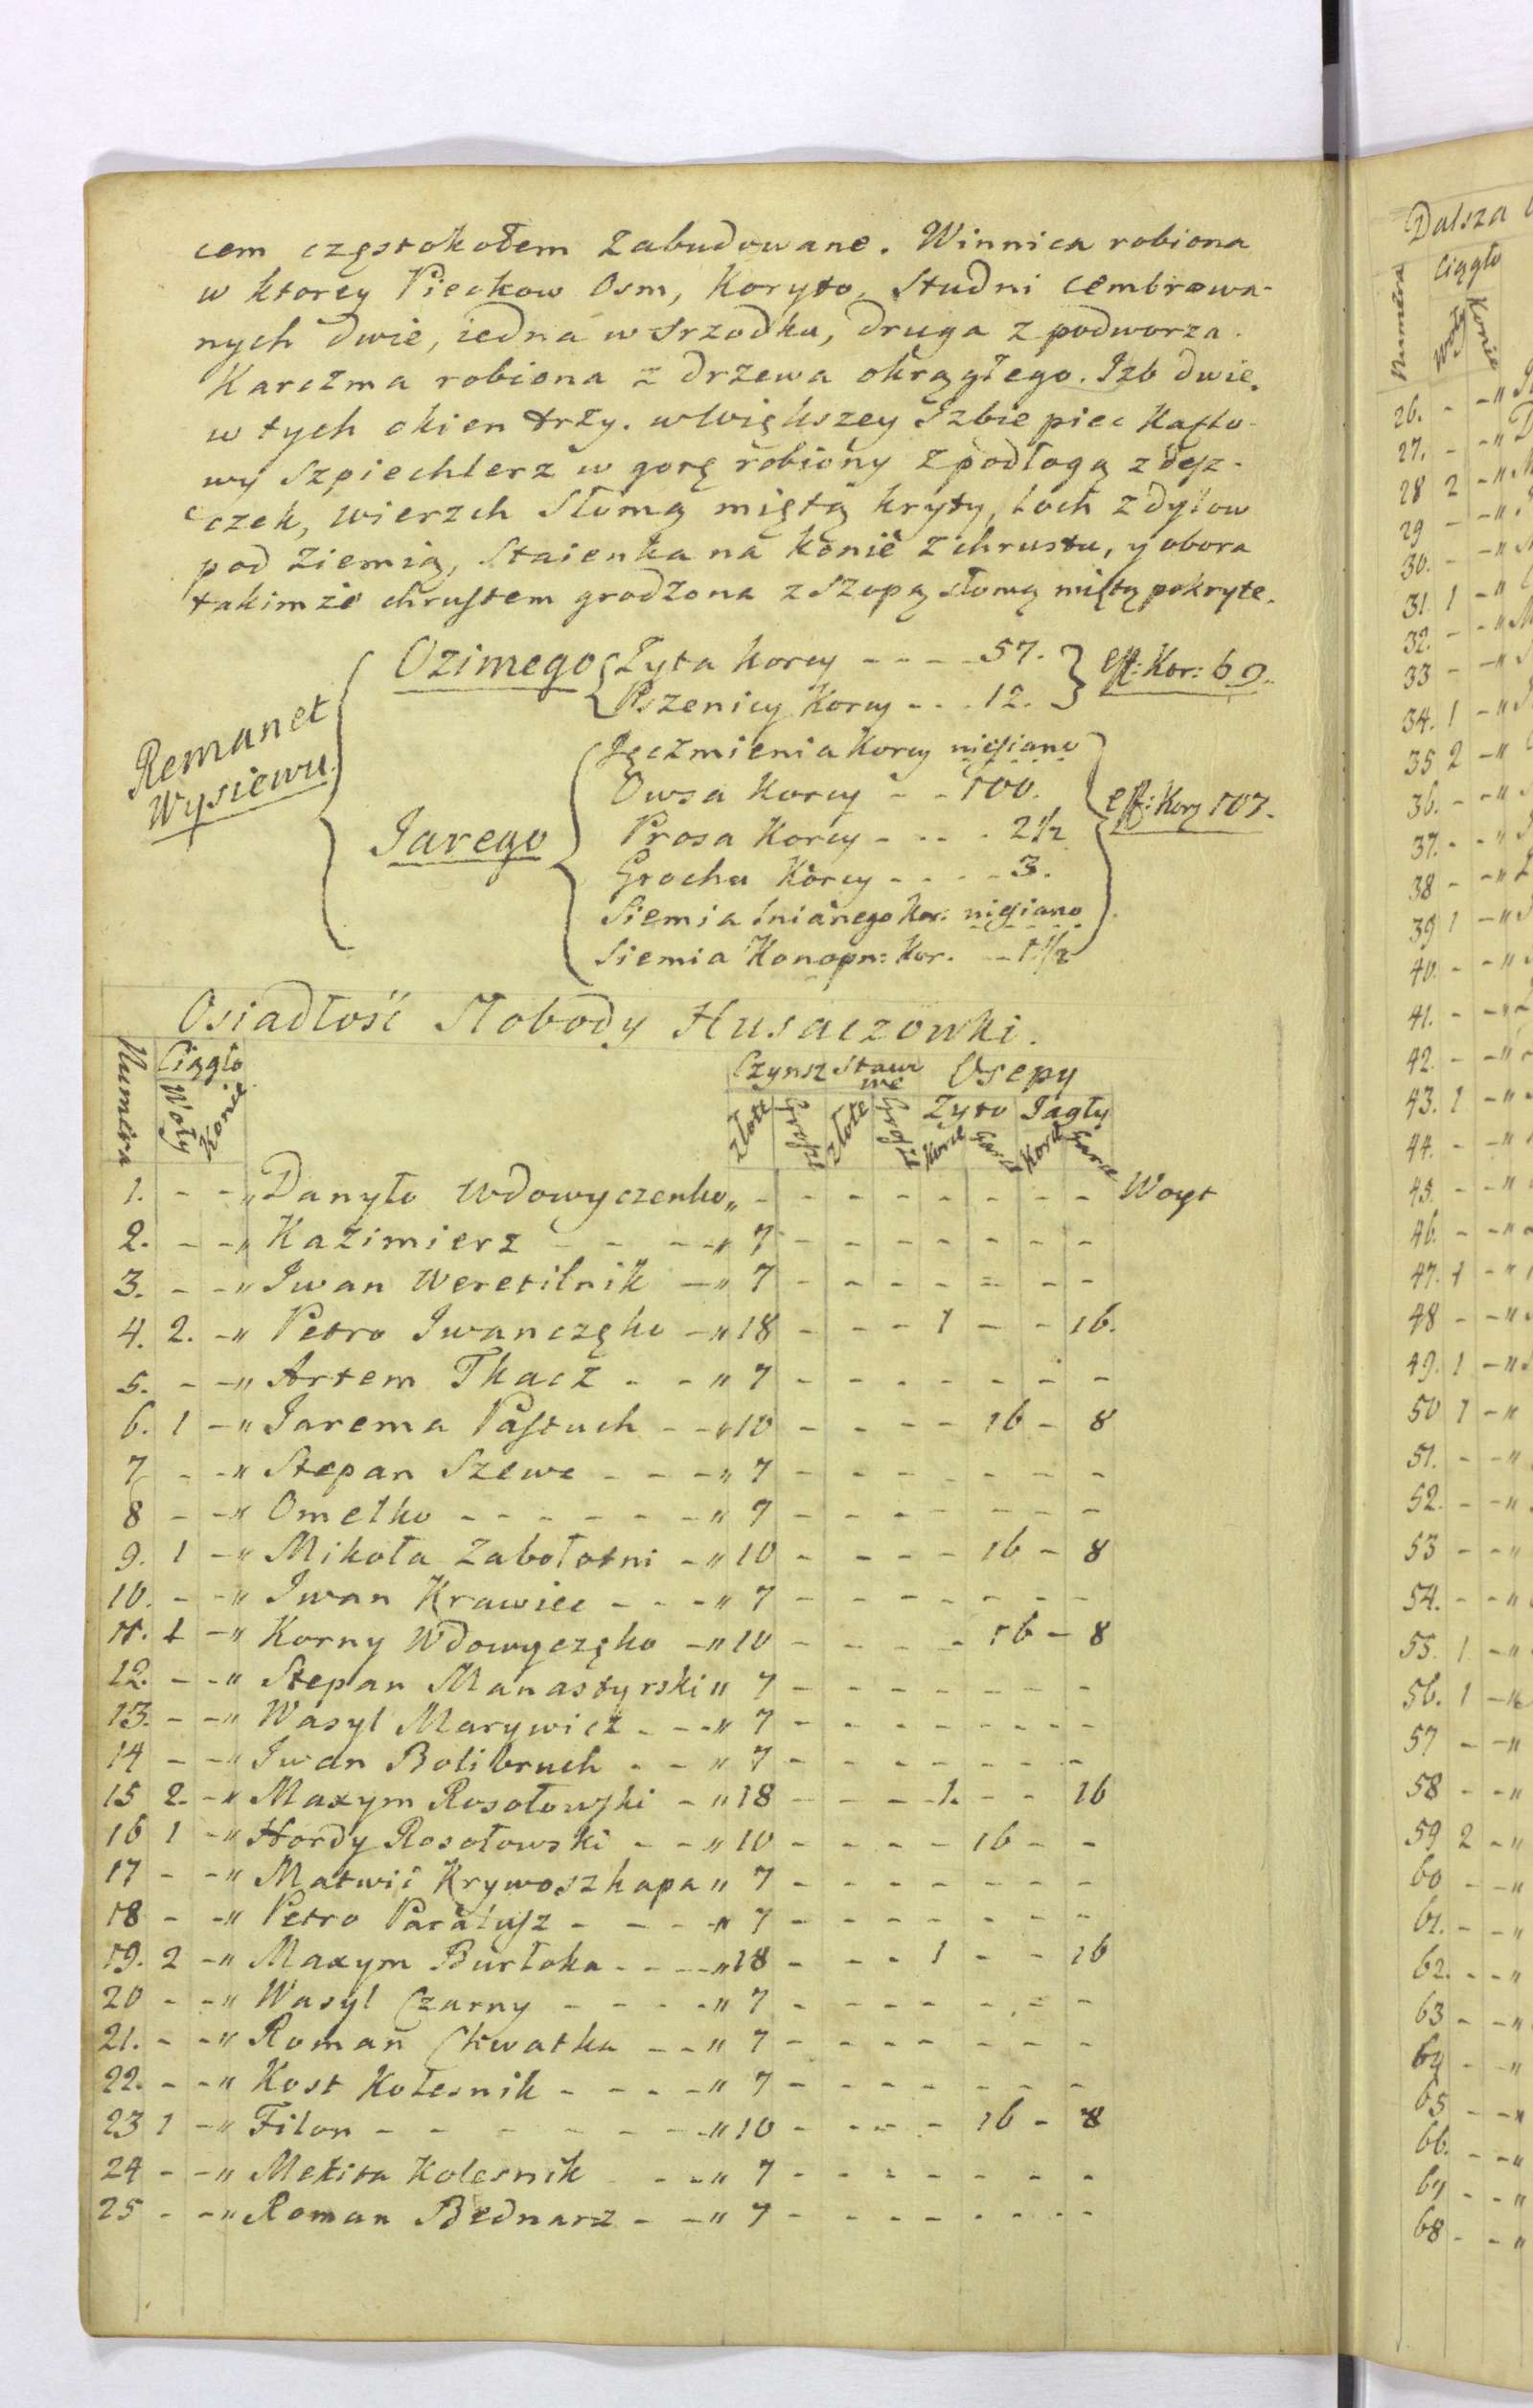 cem częstokołem Zabudowane. Winnica robiona
w ktorey Pieckow Osm, Koryto, Studni cembrowa-
nych dwie, iedna w Srzodku, druga z podworza.
Karczma robiona z drzewa okrągłego. Izb dwie,
w tych okien trzy. w Większey Izbie piec Kaflo-
wy Szpiechlerz w gorę robiony z podłogą z desz-
czek, wierzch Słomą miętą kryty, Loch z dylow
pod Ziemią, Staienka na Konie z chrustu, y obora
takimże chrustem grodzona z Szopą słomą miętą pokryte.
Remanet Wysiewu
Ozimego Zyta Korcy - - - - 57. eff: Kor: 69.
Pszenicy Korcy - - - 12.
Iarego
Jęczmienia Korcy niesiano
Owsa Korcy - - 100. eff: Korcy 107.
Prosa Korcy - - - - 2½
Grochu Korcy - - - - 3.
Siemia lnianego Kor: niesiano
Siemia Konopn: Kor. - - 1½
Osiadłość Słobody Husaczowki.
Numera Ciągło Woły Konie Czynsz Złote Grosze Stawowe Złote Grosze Osepy Zyto Korce Garce Jagły Korce Garce
1. - - " Danyło Wdowyczenko " - - - - - - - - Woyt
2. - - " Kazimierz - - - " 7 - - - - - - -
3. - - " Iwan Weretilnik - " 7 - - - - - - -
4. 2. - " Petro Iwanczęko - " 18 - - - 1 - - 16.
5. - - " Artem Tkacz - - " 7 - - - - - - -
6. 1 - " Iarema Pastuch - - " 10 - - - - 16 - 8
7 - - " Stepan Szewc - - - " 7 - - - - - - -
8 - - " Omelko - - - - - - " 7 - - - - - - -
9. 1 - " Mikoła Zabołotni - " 10 - - - - 16 - 8
10. - - " Iwan Krawiec - - - " 7 - - - - - - -
11. 1 - " Korny Wdowyczęko - " 10 - - - - 16 - 8
12. - - " Stepan Manastyrski " 7 - - - - - - -
13. - - " Wasyl Marywicz - - - " 7 - - - - - - -
14 - - " Iwan Bolibruch - - " 7 - - - - - - -
15 2. - " Maxym Rosołowski - " 18 - - - 1. - - 16
16 1 - " Hordy Rosołowski - - " 10 - - - - 16 - -
17 - - " Matwii Krywoszkapa " 7 - - - - - - -
18 - - " Petro Paralusz - - - " 7 - - - - - - -
19. 2 - " Maxym Burłoka - - - " 18 - - - 1 - - 16
20 - - " Wasyl Czarny - - - - " 7 - - - - - - -
21. - - " Roman Chwatka - - " 7 - - - - - - -
22. - - " Kost Kołesnik - - - - " 7 - - - - - - -
23 1 - " Filon - - - - - - - " 10 - - - - 16 - 8
24 - - " Mekita Kolesnik - - " 7 - - - - - - -
25 - - " Roman Bednarz - - " 7 - - - - - - -
Dalsza
Numera Ciągło Woły Konie
26. - - "
27. - - "
28 2 - "
29 - - "
30. - - "
31. 1 - "
32. - - "
33 - - "
34. 1 - "
35 2 - "
36. - - "
37. - - "
38 - - "
39 1 - "
40. - - "
41. - - "
42. - - "
43. 1 - "
44. - - "
45. - - "
46. - - "
47. 1 - "
48 - - "
49. 1 - "
50 1 - "
51. - - "
52. - - "
53 - - "
54. - - "
55. 1 - "
56. 1 - "
57 - - "
58 - - "
59 2 - "
60 - - "
61. - - "
62. - - "
63 - - "
64 - - "
65 - - "
66. - - "
67 - - "
68 - - "